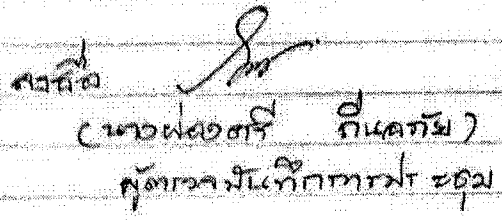 ลงชื่อ
(นางผ่องศรี ถิ่นถาภัย)
ผู้ตรวจบันทึกการประชุม